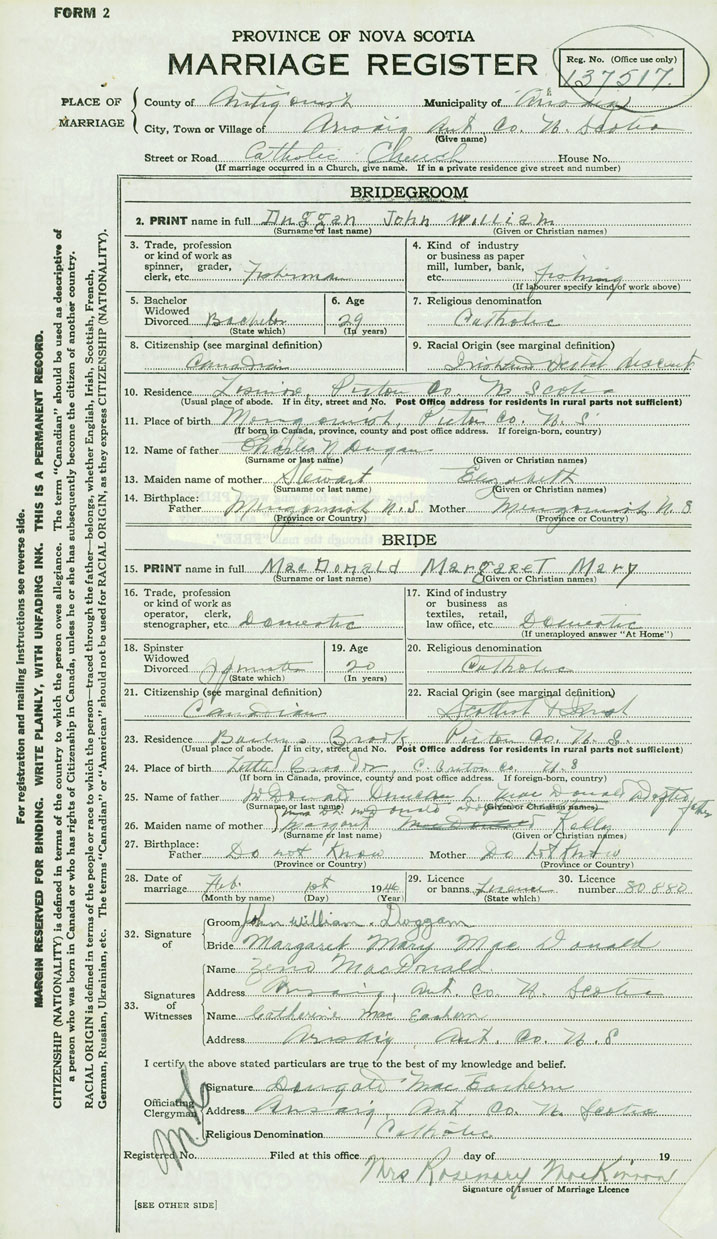 FORM 2
PROVINCE OF NOVA SCOTIA
MARRIAGE REGISTER
Reg. No. (Office use only)
137517.
PLACE OF MARRIAGE
County of Antigonish Municipality of Arisaig
City, Town or Village of Arisaig Ant. Co. N. Scotia
(Give name)
Street or Road Catholic Church House No.
(If marriage occurred in a Church, give name. If in a private residence give street and number)
BRIDEGROOM
2. PRINT name in full Duggan John William
(Surname or last name) (Given or Christian names)
3. Trade, profession or kind of work as spinner, grader, clerk, etc. Fisherman
4. Kind of industry or business as paper mill, lumber, bank, etc. fishing
(If labourer specify kind of work above)
5. Bachelor Widowed Divorced Bachelor
(State which)
6. Age 29
(In years)
7. Religious denomination Catholic
8. Citizenship (see marginal definition) Canadian
9. Racial Origin (see marginal definition) descent
10. Residence Lismore, Pictou Co. N. Scotia
(Usual place of abode. If in city, street and No. Post Office address for residents in rural parts not sufficient)
11. Place of birth Pictou Co. N. S.
(If born in Canada, province, county and post office address. If foreign-born, country)
12. Name of father Charles Dugan
(Surname or last name) (Given or Christian names)
13. Maiden name of mother Stewart Elizabeth
(Surname or last name) (Given or Christian names)
14. Birthplace: Father N.S. Mother N.S.
(Province or Country) (Province or Country)
BRIDE
15. PRINT name in full MacDonald Margaret Mary
(Surname or last name) (Given or Christian names)
16. Trade, profession or kind of work as operator, clerk, stenographer, etc. Domestic
17. Kind of industry or business as textiles, retail, law office, etc. Domestic
(If unemployed answer "At Home")
18. Spinster Widowed Divorced Spinster
(State which)
19. Age 20
(In years)
20. Religious denomination Catholic
21. Citizenship (see marginal definition) Canadian
22. Racial Origin (see marginal definition) Scottish & Irish
23. Residence Brook Pictou Co. N. S.
(Usual place of abode. If in city, street and No. Post Office address for residents in rural parts not sufficient)
24. Place of birth Little Bras D'or, C. Breton Co. N. S
(If born in Canada, province, county and post office address. If foreign-born, country)
25. Name of father Mac Donald
(Surname or last name) (Given or Christian names)
26. Maiden name of mother Margaret Kelly
(Surname or last name) (Given or Christian names)
27. Birthplace: Father Do not Know Mother Do not Know
(Province or Country) (Province or Country)
28. Date of marriage Feb. 1st 1946
(Month by name) (Day) (Year)
29. Licence or banns license
(State which)
30. Licence number 30880
32. Signature of
Groom John William Doggam
Bride Margaret Mary Mac Donald
33. Signatures of Witnesses
Name MacDonald
Address Arisaig, Ant. Co. N. Scotia
Name Catherine Mac Eachern
Address Arisaig, Ant. Co. N.S
I certify the above stated particulars are true to the best of my knowledge and belief.
Officiating Clergyman
Signature Dougald Mac Eachern
Address Arisaig, Ant. Co. N. Scotia
Religious Denomination Catholic
Registered No. Filed at this office day of 19
Mrs Rosemary MacKinnon
Signature of Issuer of Marriage Licence
[SEE OTHER SIDE]
For registration and mailing instructions see reverse side.
MARGIN RESERVED FOR BINDING. WRITE PLAINLY, WITH UNFADING INK. THIS IS A PERMANENT RECORD.
CITIZENSHIP (NATIONALITY) is defined in terms of the country to which the person owes allegiance. The term "Canadian" should be used as descriptive of
a person who was born in Canada or who has rights of Citizenship in Canada, unless he or she has subsequently become the citizen of another country.
RACIAL ORIGIN is defined in terms of the people or race to which the person—traced through the father—belongs, whether English, Irish, Scottish, French,
German, Russian, Ukrainian, etc. The terms "Canadian" or "American" should not be used for RACIAL ORIGIN, as they express CITIZENSHIP (NATIONALITY).